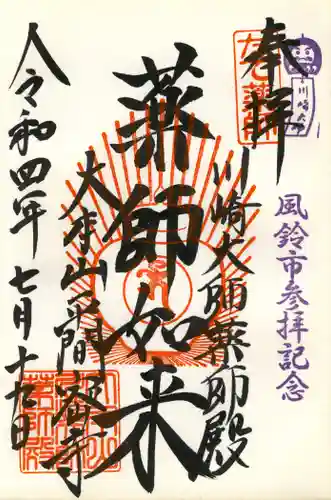 奉拝
川崎大師
風鈴市参拝記念
川崎大師薬師殿
薬師如来
大本山平間密寺
令和四年七月十九日